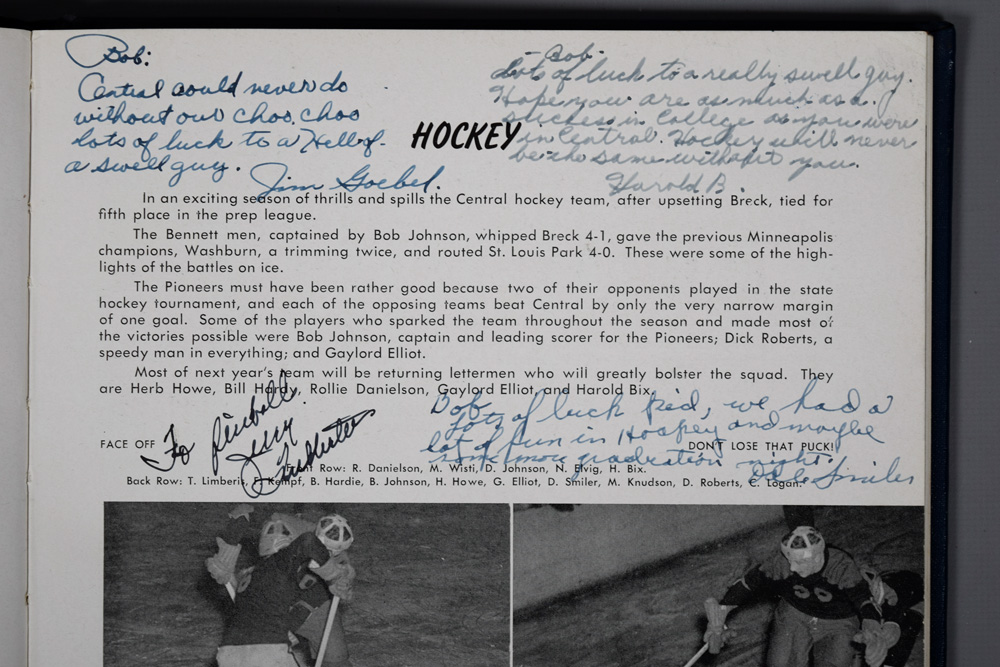 Bob:
Central could never do
without our choo, choo
lots of luck to a Hell of
a swell guy.
Jim Goebel.
Bob:
Lots of luck to a really swell guy.
Hope you are as much as a
in College as you were
in Central. Hockey will never
be the same without you.
Harold B.
HOCKEY
In an exciting season of thrills and spills the Central hockey team, after upsetting Breck, tied for
fifth place in the prep league.
The Bennett men, captained by Bob Johnson, whipped Breck 4-1, gave the previous Minneapolis
champions, Washburn, a trimming twice, and routed St. Louis Park 4-0. These were some of the high-
lights of the battles on ice.
The Pioneers must have been rather good because two of their opponents played in the state
hockey tournament, and each of the opposing teams beat Central by only the very narrow margin
of one goal. Some of the players who sparked the team throughout the season and made most of
the victories possible were Bob Johnson, captain and leading scorer for the Pioneers; Dick Roberts, a
speedy man in everything; and Gaylord Elliot.
Most of next year's team will be returning lettermen who will greatly bolster the squad. They
are Herb Howe, Bill Hardy, Rollie Danielson, Gaylord Elliot, and Harold Bix.
To
Bob,
Lots of luck kid, we had a
lot of fun in Hockey and maybe
some more graduation night.
Smiler
FACE OFF
DON'T LOSE THAT PUCK!
Front Row: R. Danielson, M. Wisti, D. Johnson, N. Elvig, H. Bix.
Back Row: T. Limberis, F. Kempf, B. Hardie, B. Johnson, H. Howe, G. Elliot, D. Smiler, M. Knudson, D. Roberts, C. Logan.